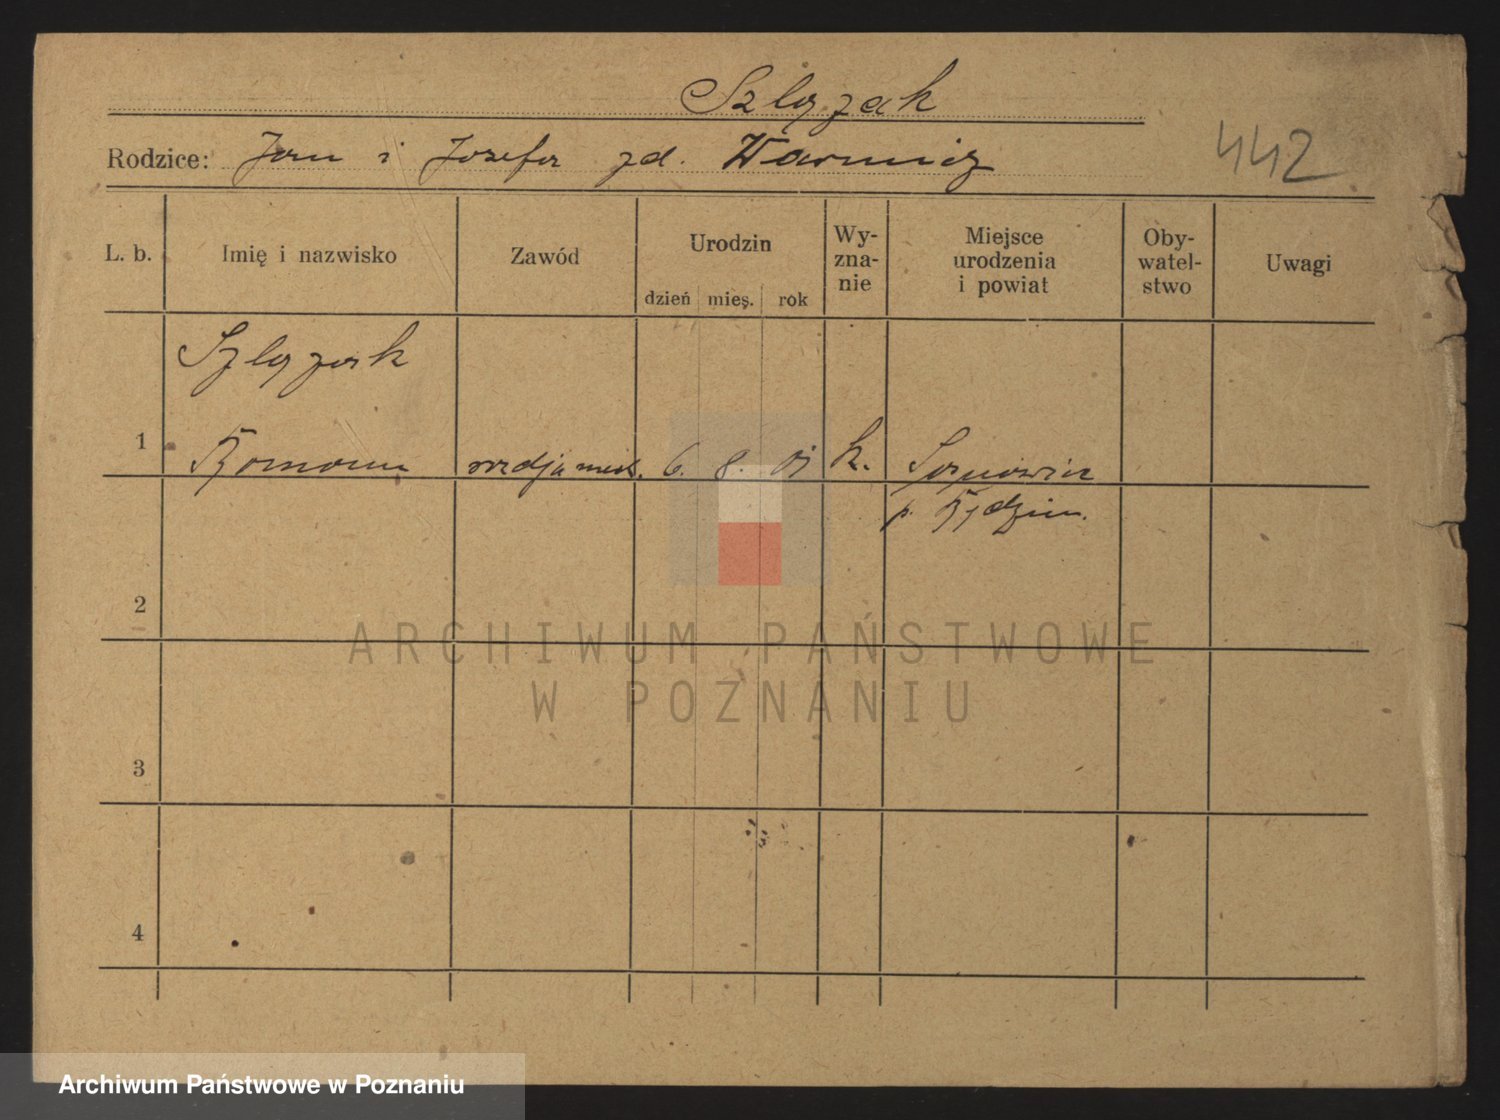 Szlązak
Rodzice: Jan i Józefa zd. Warmicz
442
L. b. Imię i nazwisko Zawód Urodzin dzień mieș. rok Wy-zna-nie Miejsce urodzenia i powiat Oby-watel-stwo Uwagi
Szlązak
1 Roman 6. 8. 01 k. Sosnowice
p. Będzin.
2
3
4
ARCHIWUM PAŃSTWOWE
W POZNANIU
Archiwum Państwowe w Poznaniu